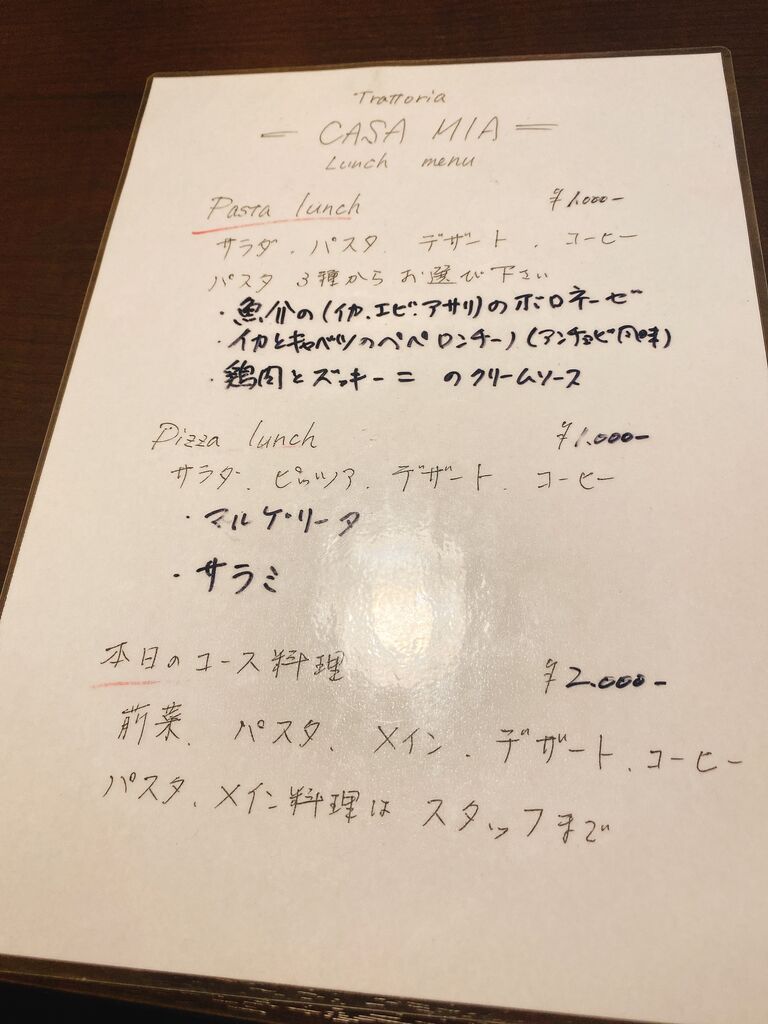 Trattoria
= CASA MIA =
Lunch menu
Pasta lunch ¥1.000-
サラダ、パスタ デザート、コーヒー
パスタ 3種からお選び下さい
・魚介の(イカ、エビ、アサリ)のボロネーゼ
・イカとキャベツのペペロンチーノ(アンチョビ風味)
・鶏肉とズッキーニ のクリームソース
Pizza lunch ¥1.000-
サラダ、ピッツァ、デザート、コーヒー
・マルゲリータ
・サラミ
本日のコース料理 ¥2.000-
前菜、パスタ、メイン、デザート、コーヒー
パスタ、メイン料理は スタッフまで